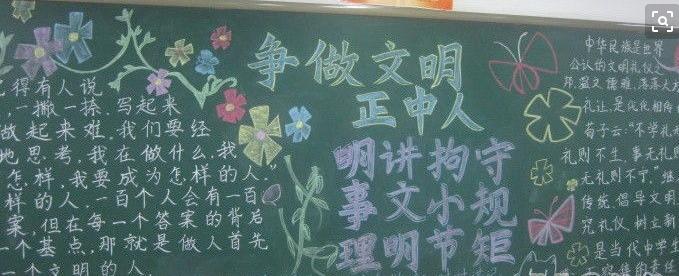 争做文明
正中人
记得有人说
，一撇一捺，写起来
做起来难，我们要经
地思考，我在做什么，我
怎样，我要成为怎样的人。”
样的人，一百个人会有一百
案，但在每一个答案的背后
一个基点，那就是做人首先
一个文明的人，
明讲拘守
事文小规
理明节矩
中华民族是世界
公认的文明礼仪之
邦，温文儒雅，落落大方
礼让，是
荀子云：“不学礼无
礼则不生，事无礼则
无礼则不宁，”继
传统，倡导文明
礼仪，树立新
是当代中学生
的责任